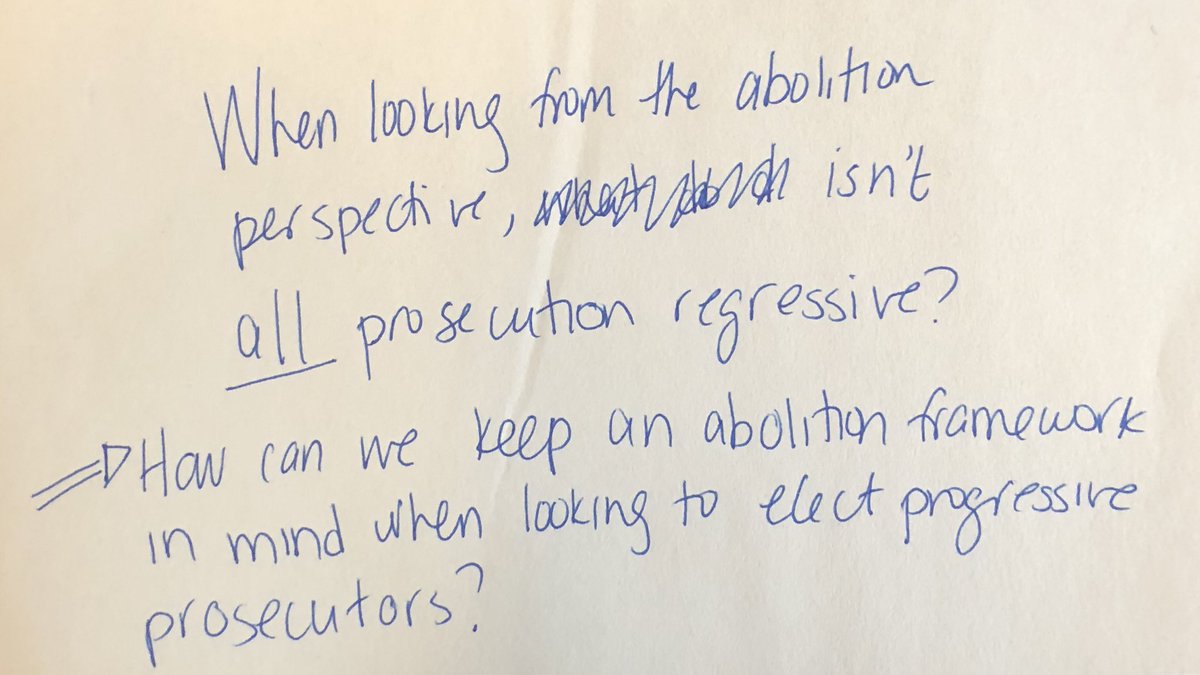 When looking from the abolition
perspective, isn't
all prosecution regressive?
⇒ How can we keep an abolition framework
in mind when looking to elect progressive
prosecutors?